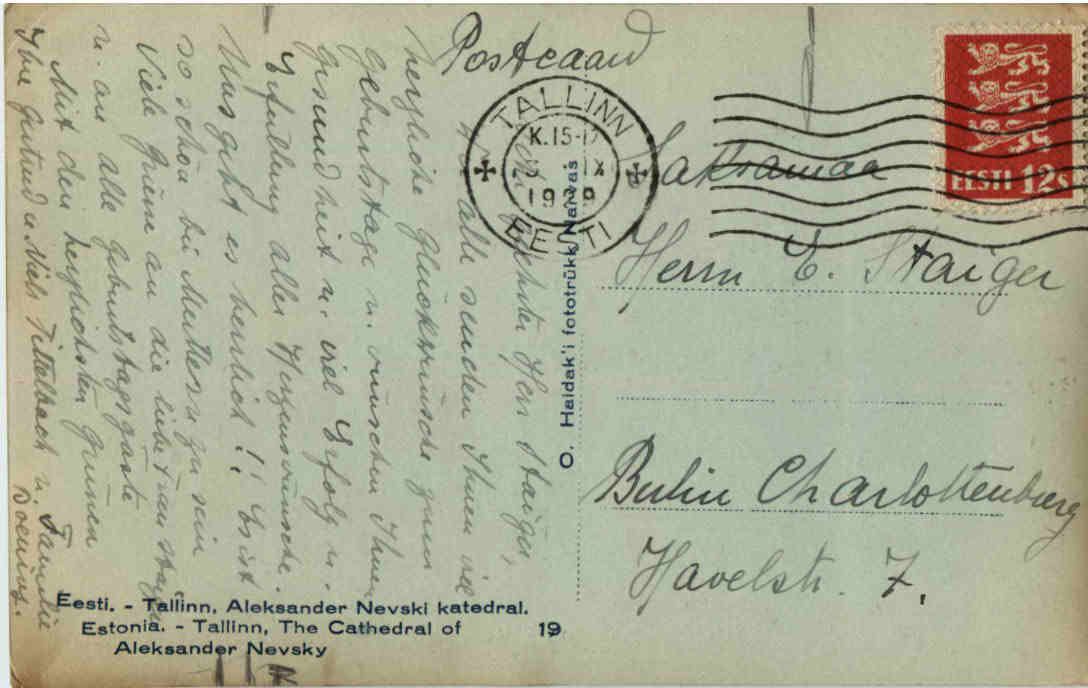 Postcaard
TALLINN
K. 15-17
IX
EESTI
EESTI 12s
Saksamaa
Herrn E. Staiger
Berlin Charlottenburg
Havelstr. 7.
geehrter Herr Staiger,
Wir alle senden Ihnen viel
herzliche Glückwünsche zum
Geburtstage u. wünschen Ihnen
Gesundheit u. viel Erfolg u.
Erfüllung aller Herzenswünsche.
Uns geht es herrlich!! Es ist
so schön bei Muttern zu sein
Viele Grüsse an die liebe Frau Staiger
u. an alle Geburtstagsgäste
Mit den herzlichsten Grüssen
Ihre Gertrud u. Niels Tittelbach u. Familie
Doering.
O. Haidak'i fototrükk, Narvas
Eesti. - Tallinn, Aleksander Nevski katedral.
Estonia. - Tallinn, The Cathedral of 19
Aleksander Nevsky